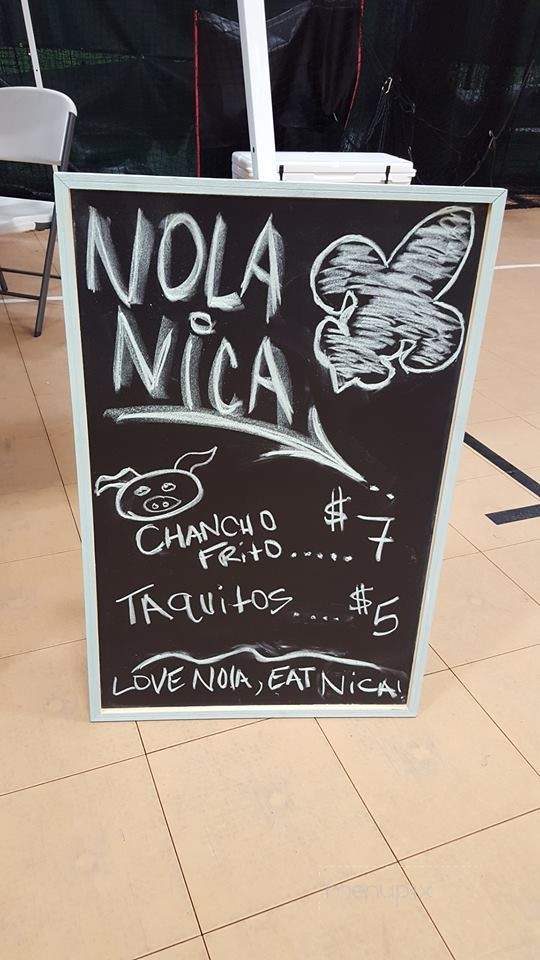 NOLA
NICA
CHANCHO
FRITO..... $7
TAQUITOS.... $5
LOVE NOLA, EAT NICA!
menupix